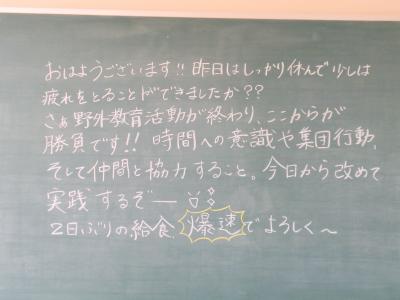 おはようございます!! 昨日はしっかり休んで少しは
疲れをとることができましたか??
さぁ野外教育活動が終わり、ここからが
勝負です!! 時間への意識や集団行動、
そして仲間と協力すること。今日から改めて
実践するぞー
2日ぶりの給食、爆速でよろしく〜